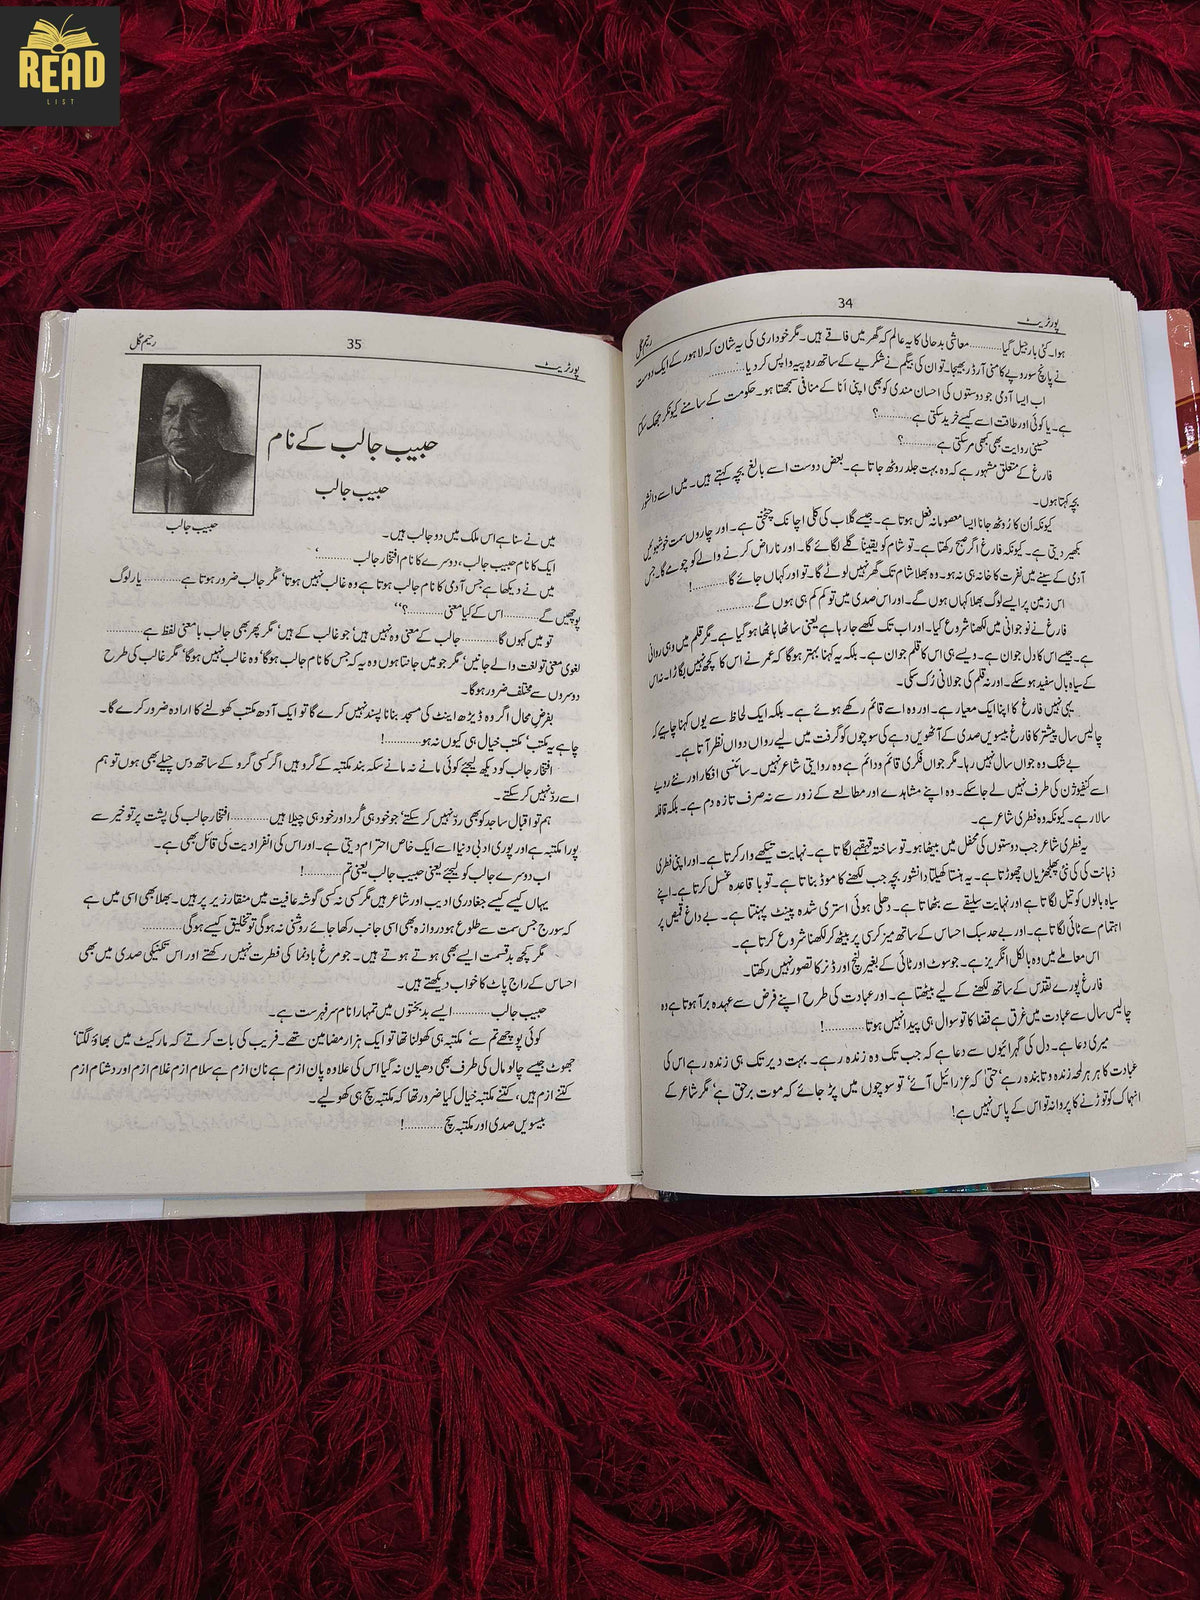 READ
LIST
34
پورٹریٹ
رحیم گل
ہوا۔ کئی بار جیل گیا............ معاشی بدحالی کا یہ عالم کہ گھر میں فاقے ہیں۔ مگر خودداری کی یہ شان کہ لاہور کے ایک دوست
نے پانچ سو روپے کا منی آرڈر بھیجا۔ تو ان کی بیگم نے شکریے کے ساتھ روپیہ واپس کر دیا............
اب ایسا آدمی جو دوستوں کی احسان مندی کو بھی اپنی اَنا کے منافی سمجھتا ہو۔ حکومت کے سامنے کیونکر جھک سکتا
ہے۔ یا کوئی اور طاقت اسے کیسے خرید سکتی ہے............؟
حسینی روایت بھی کبھی مر سکتی ہے............؟
فارغ کے متعلق مشہور ہے کہ وہ بہت جلد روٹھ جاتا ہے۔ بعض دوست اسے بالغ بچہ کہتے ہیں۔ میں اسے دانشور
بچہ کہتا ہوں۔
کیونکہ اُن کا رُوٹھ جانا ایسا معصومانہ فعل ہوتا ہے۔ جیسے گلاب کی کلی اچانک چٹختی ہے۔ اور چاروں سمت خوشبوئیں
بکھیر دیتی ہے۔ کیونکہ فارغ اگر صبح رکھتا ہے۔ تو شام کو یقیناً گلے لگائے گا۔ اور ناراض کرنے والے کو چومے گا۔ جس
آدمی کے سینے میں نفرت کا خانہ ہی نہ ہو۔ وہ بھلا شام تک گھر نہیں لوٹے گا۔ تو اور کہاں جائے گا............!
اس زمین پر ایسے لوگ بھلا کہاں ہوں گے۔ اور اس صدی میں تو کم کم ہی ہوں گے............
فارغ نے نوجوانی میں لکھنا شروع کیا۔ اور اب تک لکھے جا رہا ہے یعنی ساٹھا پاٹھا ہو گیا ہے۔ مگر قلم میں وہی روانی
ہے۔ جیسے اس کا دل جوان ہے۔ ویسے ہی اس کا قلم جوان ہے۔ بلکہ یہ کہنا بہتر ہوگا کہ عمر نے اس کا کچھ نہیں بگاڑا۔ نہ اس
کے سیاہ بال سفید ہو سکے۔ اور نہ قلم کی جولانی رُک سکی۔
یہی نہیں فارغ کا اپنا ایک معیار ہے۔ اور وہ اسے قائم رکھے ہوئے ہے۔ بلکہ ایک لحاظ سے یوں کہنا چاہیے کہ
چالیس سال پیشتر کا فارغ بیسویں صدی کے آٹھویں دہے کی سوچوں کو گرفت میں لیے رواں دواں نظر آتا ہے۔
بے شک وہ جواں سال نہیں رہا۔ مگر جواں فکری قائم و دائم ہے وہ روایتی شاعر نہیں۔ سائنسی افکار اور نئے رویے
اسے کنفیوژن کی طرف نہیں لے جا سکے۔ وہ اپنے مشاہدے اور مطالعے کے زور سے نہ صرف تازہ دم ہے۔ بلکہ قافلہ
سالار ہے۔ کیونکہ وہ فطری شاعر ہے۔
یہ فطری شاعر جب دوستوں کی محفل میں بیٹھا ہو۔ تو ساختہ قہقہے لگاتا ہے۔ نہایت تیکھے وار کرتا ہے۔ اور اپنی فطری
ذہانت کی کئی پھلجھڑیاں چھوڑتا ہے۔ یہ ہنستا کھیلتا دانشور بچہ جب لکھنے کا موڈ بناتا ہے۔ تو باقاعدہ غسل کرتا ہے۔ اپنے
سیاہ بالوں کو تیل لگاتا ہے اور نہایت سلیقے سے بٹھاتا ہے۔ دھلی ہوئی استری شدہ پینٹ پہنتا ہے۔ بے داغ قمیض پر
اہتمام سے ٹائی لگاتا ہے۔ اور بے حد سبک احساس کے ساتھ میز کرسی پر بیٹھ کر لکھنا شروع کرتا ہے۔
اس معاملے میں وہ بالکل انگریز ہے۔ جو سوٹ اور ٹائی کے بغیر لنچ اور ڈنر کا تصور نہیں رکھتا۔
فارغ پورے تقدس کے ساتھ لکھنے کے لیے بیٹھتا ہے۔ اور عبادت کی طرح اپنے فرض سے عہدہ برآ ہوتا ہے وہ
چالیس سال سے عبادت میں غرق ہے قضا کا تو سوال ہی پیدا نہیں ہوتا............!
میری دعا ہے۔ دل کی گہرائیوں سے دعا ہے کہ جب تک وہ زندہ رہے۔ بہت دیر تک ہی زندہ رہے اس کی
عبادت کا ہر ہر لمحہ زندہ و تابندہ رہے‘ حتیٰ کہ عزرائیل آئے‘ تو سوچوں میں پڑ جائے کہ موت برحق ہے‘ مگر شاعر کے
انہماک کو توڑنے کا پروانہ تو اس کے پاس نہیں ہے!
پورٹریٹ
35
رحیم گل
حبیب جالب کے نام
حبیب جالب
حبیب جالب
میں نے سنا ہے اس ملک میں دو جالب ہیں۔
ایک کا نام حبیب جالب، دوسرے کا نام افتخار جالب............‘
میں نے دیکھا ہے جس آدمی کا نام جالب ہوتا ہے وہ غالب نہیں ہوتا‘ مگر جالب ضرور ہوتا ہے............ یار لوگ
پوچھیں گے............ اس کے کیا معنی............؟‘‘
تو میں کہوں گا............ جالب کے معنی وہ نہیں ہیں‘ جو غالب کے ہیں‘ مگر پھر بھی جالب بامعنی لفظ ہے............
لغوی معنی تو لغت والے جانیں‘ مگر جو میں جانتا ہوں وہ یہ کہ جس کا نام جالب ہوگا‘ وہ غالب نہیں ہوگا‘ مگر غالب کی طرح
دوسروں سے مختلف ضرور ہوگا۔
بفرضِ محال اگر وہ ڈیڑھ اینٹ کی مسجد بنانا پسند نہیں کرے گا تو ایک آدھ مکتب کھولنے کا ارادہ ضرور کرے گا۔
چاہے یہ مکتب‘ مکتب خیال ہی کیوں نہ ہو............!
افتخار جالب کو دیکھ لیجئے کوئی مانے نہ مانے سکہ بند مکتبہ کے گرو ہیں اگر کسی گرو کے ساتھ دس چیلے بھی ہوں تو ہم
اسے ردّ نہیں کر سکتے۔
ہم تو اقبال ساجد کو بھی ردّ نہیں کر سکتے‘ جو خود ہی گُرو اور خود ہی چیلا ہیں............ افتخار جالب کی پشت پر تو خیر سے
پورا مکتبہ ہے اور پوری ادبی دنیا اسے ایک خاص احترام دیتی ہے۔ اور اس کی انفرادیت کی قائل بھی ہے۔
اب دوسرے جالب کو لیجئے یعنی حبیب جالب یعنی تم............!
یہاں کیسے کیسے جغادری ادیب اور شاعر ہیں مگر کسی نہ کسی گوشہ عافیت میں منقار زیر پر ہیں۔ بھلا بھی اسی میں ہے
کہ سورج جس سمت سے طلوع ہو دروازہ بھی اسی جانب رکھا جائے روشنی نہ ہوگی تو تخلیق کیسے ہوگی............
مگر کچھ بدقسمت ایسے بھی ہوتے ہوتے ہیں۔ جو مرغ بادنما کی فطرت نہیں رکھتے اور اس تکنیکی صدی میں بھی
احساس کے راج پاٹ کا خواب دیکھتے ہیں۔
حبیب جالب............ ایسے بدبختوں میں تمہارا نام سرفہرست ہے۔
کوئی پوچھے تم سے‘ مکتبہ ہی کھولنا تھا تو ایک ہزار مضامین تھے۔ فریب کی بات کرتے کہ مارکیٹ میں بھاؤ لگتا‘
جھوٹ جیسے چالو مال کی طرف بھی دھیان نہ گیا اس کی علاوہ پان ازم ہے نان ازم ہے سلام ازم غلام ازم اور دشنام ازم
کتنے ازم ہیں، کتنے مکتبہ خیال کیا ضرور تھا کہ مکتبہ سچ ہی کھولیے۔
بیسویں صدی اور مکتبہ سچ............!